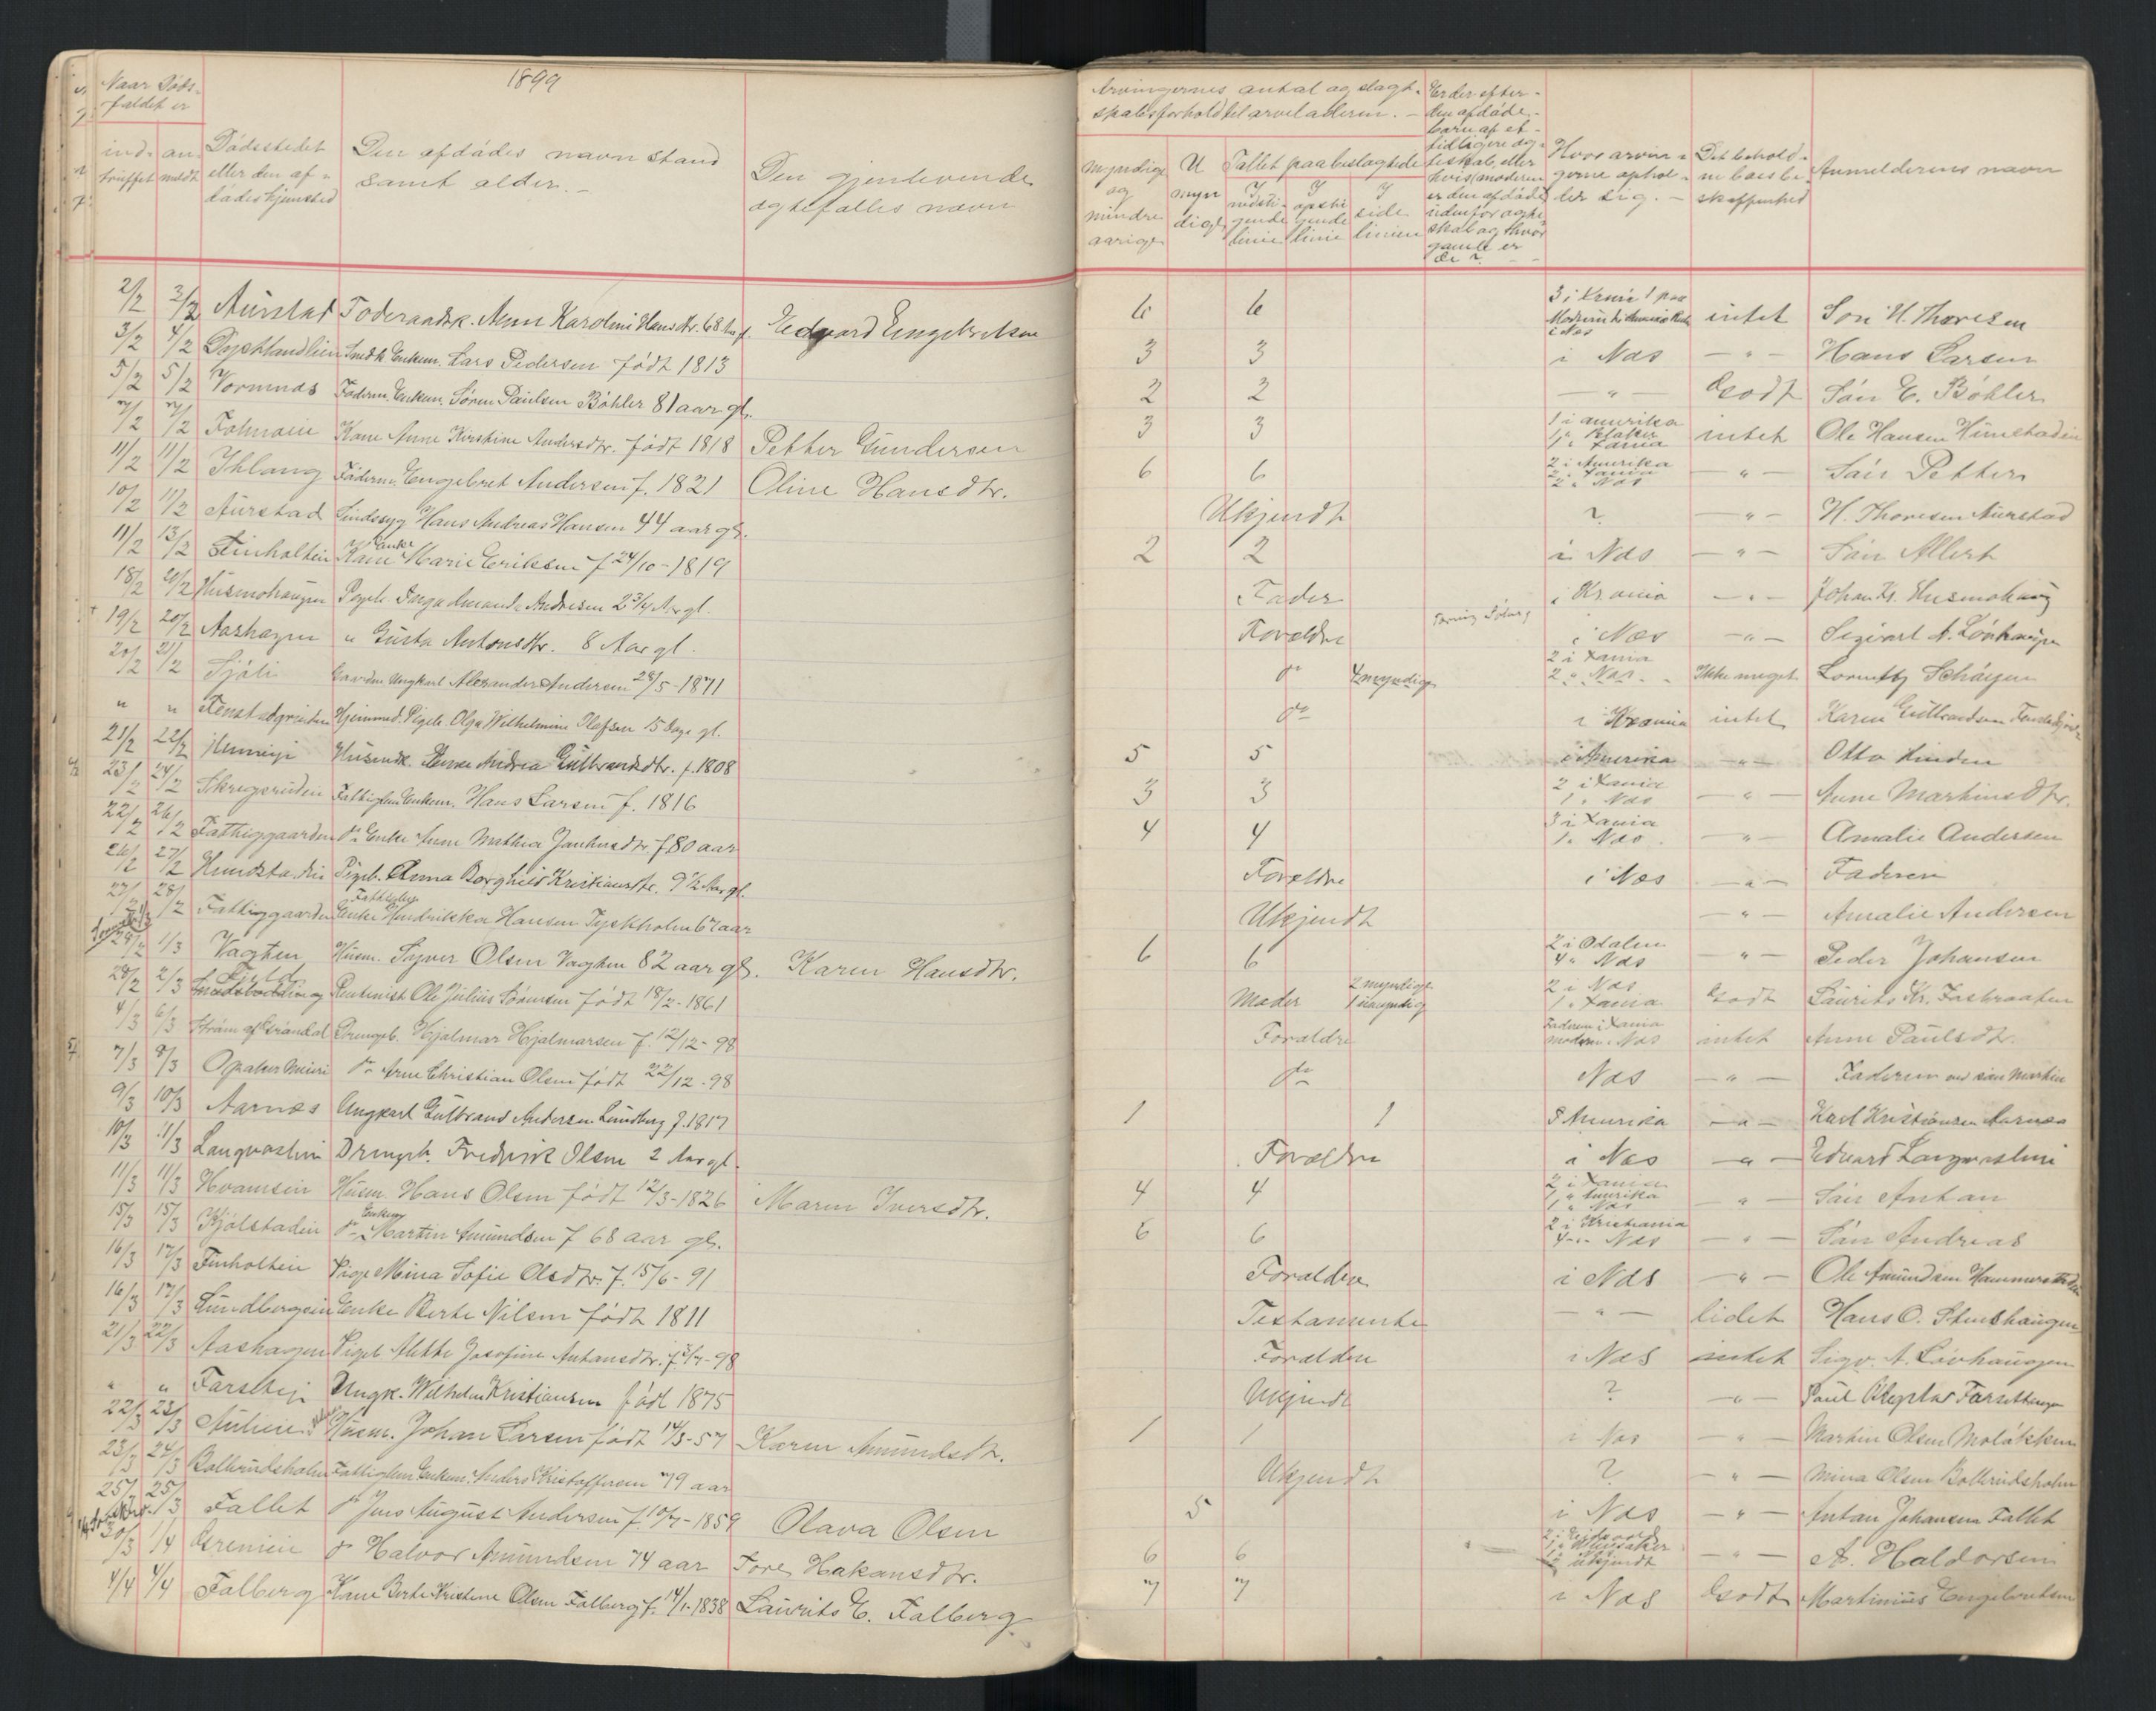 1899
Naar Døds-
faldet er
ind-
truffet
an-
meldt
Dødsstedet
eller den af-
dødes hjemsted
Den afdødes navn stand
samt alder. -
Den gjenlevende
ægtefælles navn
Arvingernes antal og slægt-
skabsforhold til arveladeren. -
Myndige
og
mindre
aarige
U
myn
dige
Tallet paa beslægtede
I
nedsti-
gende
linie
I
opsti
gende
linie
I
side
linien
Er der efter
den afdøde
barn af et
tidligere æg-
teskab, eller
hvis moderen
er den afdøde
udenfor ægte
skab og hvor
gamle er
de ?
Hvor arvin-
gerne ophol-
der sig. -
Det behold-
ne boes be-
skaffenhed
Anmelderens navn
2/2 3/2 Aurstad Foderaadsk. Anne Karoline Hansdtr. 68 Aar gl. Edvard Engebretsen 6 6 intet Søn H. Thoresen
3/2 4/2 Dyskland lien Indk. Enkem. Lars Pedersen født 1813 3 3 i Næs - " - Hans Larsen
5/2 5/2 Vormnæs Føderm. Enkem. Søren Paulsen Bøhler 81 aar gl. 2 2 - " - Godt Søn E. Bøhler
7/2 7/2 Kone Anne Kirstine Andersdtr. født 1818 Petter Gundersen 3 3 1 i Amerika 1 " Blaker 1 " Xania intet Ole Hansen
11/2 11/2 Ihlang Føderm. Engebret Andersen f. 1821 Oline Hansdtr. 6 6 2 i Amerika 2 " Xania 2 " Næs - " - Søn Petter
10/2 11/2 Aurstad Sindssyg Hans Andreas Hansen 44 aar gl. Ukjendt ? - " - H. Thoresen Aurstad
11/2 13/2 Finholtein Enke Kone Marie Eriksen f 24/10-1819 2 2 i Næs - " - Søn Albert
18/2 20/2 Husmohaugen Pigeb. Inga Amanda Andresen 2 3/4 Aar gl. Fader i Kr.ania - " - Johan Kr. Husmohaug
19/2 20/2 Aashagen " Gusta Antonsdtr. 8 Aar gl. Forældre i Næs - " - Sigvart A. Løvhaugen
20/2 21/2 Sjøli Ungkarl Alexander Andersen 28/5-1871 do 4 myndige 2 i Xania 2 " Næs Ikke meget Schøyen
" " Fenstadgrinden Hjemmed. Pigeb. Olga Wilhelmine Olafsen 15 Dage gl. do i Krania intet Karen Gulbrandsen
21/2 22/2 Husmdk. Anne Andrea Gulbrandsdtr. f. 1808 5 5 i Amerika - " - Otto Linden
23/2 24/2 Skregsrudeie Fattiglem Enkem. Hans Larsen f. 1816 3 3 2 i Xania 1 " Næs - " - Anne Martinusdtr.
22/2 26/2 Fattiggaarden do Enke Anne Mathea f 80 aar 4 4 3 i Xania 1 " Næs - " - Amalie Andersen
26/2 27/2 Pigeb. Anna Borghild Kristiansdtr. 9 1/2 Aar gl. Forældre i Næs - " - Faderen
27/2 28/2 Fattiggaarden Fattiglem Enke Hendrikka Hansen Tyskholm 67 aar Ukjendt - " - Amalie Andersen
28/2 1/3 Vagten Husm. Syver Olsen Vagten 82 aar gl. Karen Hansdtr. 6 6 2 i Odalen 4 " Næs - " - Peder Johansen
28/2 2/3 Field Rentenist Ole Julius Sørensen født 18/2-1861 Moder 2 myndige 1 umyndig 2 i Næs 1 " Xania Godt Laurits Kr.
4/3 6/3 Strøm af Drengeb. Hjalmar Hjalmarsen f. 12/12-98 Forældre Faderen i Xania moderen i Næs intet Anne Paulsdtr.
7/3 8/3 Opaker do Arne Christian Olsen født 22/12-98 do Næs - " - Faderen ved søn Martin
9/3 10/3 Aarnæs Ungkarl Gulbrand Andersen Lundberg f. 1817 1 1 i Amerika - " - Karl Kristiansen Aarnæs
10/3 11/3 Langvaslien Drengeb. Fredrik Olsen 2 Aar gl. Forældre i Næs - " - Edvard Langvaslien
11/3 11/3 Hvamseie Husm. Hans Olsen født 12/3-1826 Maren Iversdtr. 4 4 2 i Xania 1 " Amerika 1 " Næs - " - Søn Anton
15/3 15/3 Kjølstadeie do Enkem. Martin Amundsen f 68 aar gl. 6 6 2 i Kristiania 4 - " - Næs - " - Søn Andreas
16/3 17/3 Finholteie Pige Mina Sofie Olsdtr. f. 15/6-91 Forældre i Næs - " - Ole Amundsen
16/3 17/3 Lundbergeie Enke Berte Nilsen født 1811 Testamente - " - lidet Hans O. Stenshaugen
21/3 22/3 Aashagen Pigeb. Alette Josefine Antonsdtr. f. 3/7-98 Forældre i Næs intet Sigv. A. Løvhaugen
" " Ungk. Wilhelm Kristiansen født 1875 Ukjendt ? - " - Paul
22/3 23/3 Aulieie Husm. Johan Larsen født 14/3-57 Karen Amundsdtr. 1 1 i Næs - " - Martin Olsen Moløkken
23/3 24/3 Bollerudsholm Fattiglem Enkem. Anders Kristoffersen 79 aar Ukjendt ? - " - Mina Olsen Bollerudsholm
25/3 25/3 Fallet do Jens August Andersen f. 10/7-1859 Olava Olsen 5 i Næs - " - Anton Johansen Fallet
30/3 1/4 Greneie do Halvor Amundsen 74 aar Tore Hakansdtr. 6 6 ukjendt - " - A. Haldorsen
4/4 4/4 Falberg Kone Berte Kristine Olsen Falberg f. 14/1-1838 Laurits E. Falberg 7 7 i Næs Godt Martinius Engebretsen